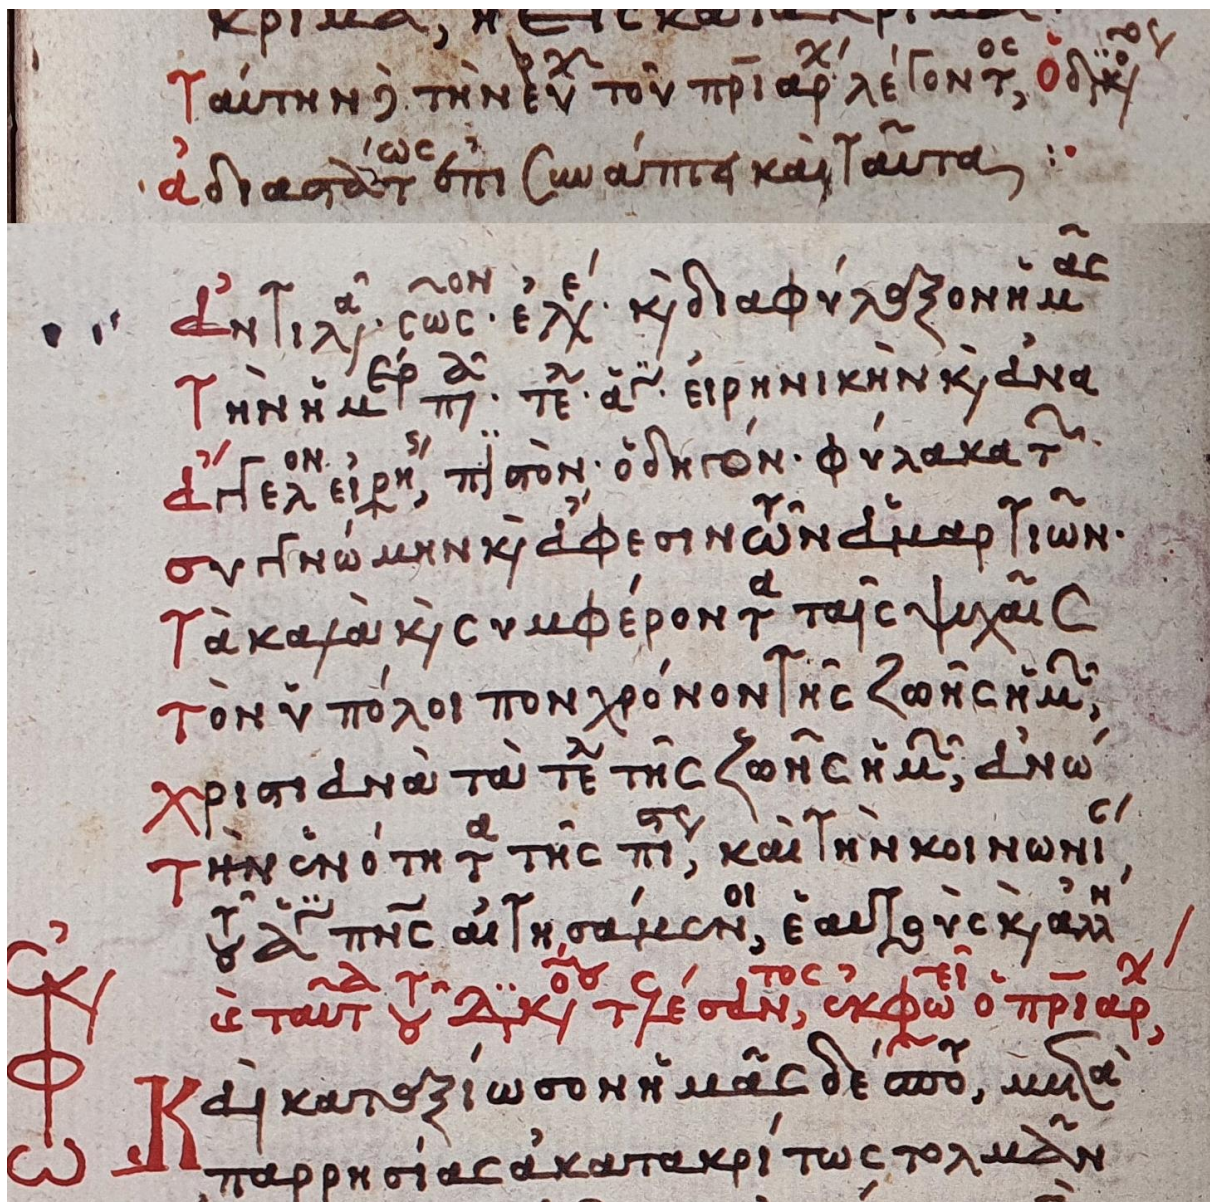 κρίμα, ἢ εἰς κατάκριμα·
Ταύτην δὲ τὴν εὐχ τοῦ πριαρχ λέγοντος, ὁ διάκονος
ἀδιαστάτως ἐπισυνάπτει καὶ ταῦτα :·
ἀντιλαβοῦ· σῶσον· ἐλέ· κ διαφύλαξον ἡμᾶς
Τὴν ἡμέρ πᾶ· τε· ἁγ· εἰρηνικὴν κ ἀνα
ἄγγελον εἰρή, πιστὸν· ὁδηγόν· φύλακα τ
συγγνώμην κ ἄφεσιν τῶν ἁμαρτιῶν·
Τὰ καλὰ κ συμφέροντα ταῖς ψυχαῖς
τὸν ὑπόλοιπον χρόνον τῆς ζωῆς ἡμ,
χριστιανὰ τὰ τε τῆς ζωῆς ἡμ, ἀνώ
τὴν ἑνότητα τῆς πίστ, καὶ τὴν κοινωνί,
τοῦ ἁγ πνς αἰτησάμενοι, ἑαυτοὺς κ ἀλλή
ταῦτα τοῦ διακ τελέσαντος, ἐκφωνεῖ ὁ πριαρχ,
Καὶ καταξίωσον ἡμᾶς δέσποτ, μετὰ
παρρησίας ἀκατακρίτως τολμᾶν